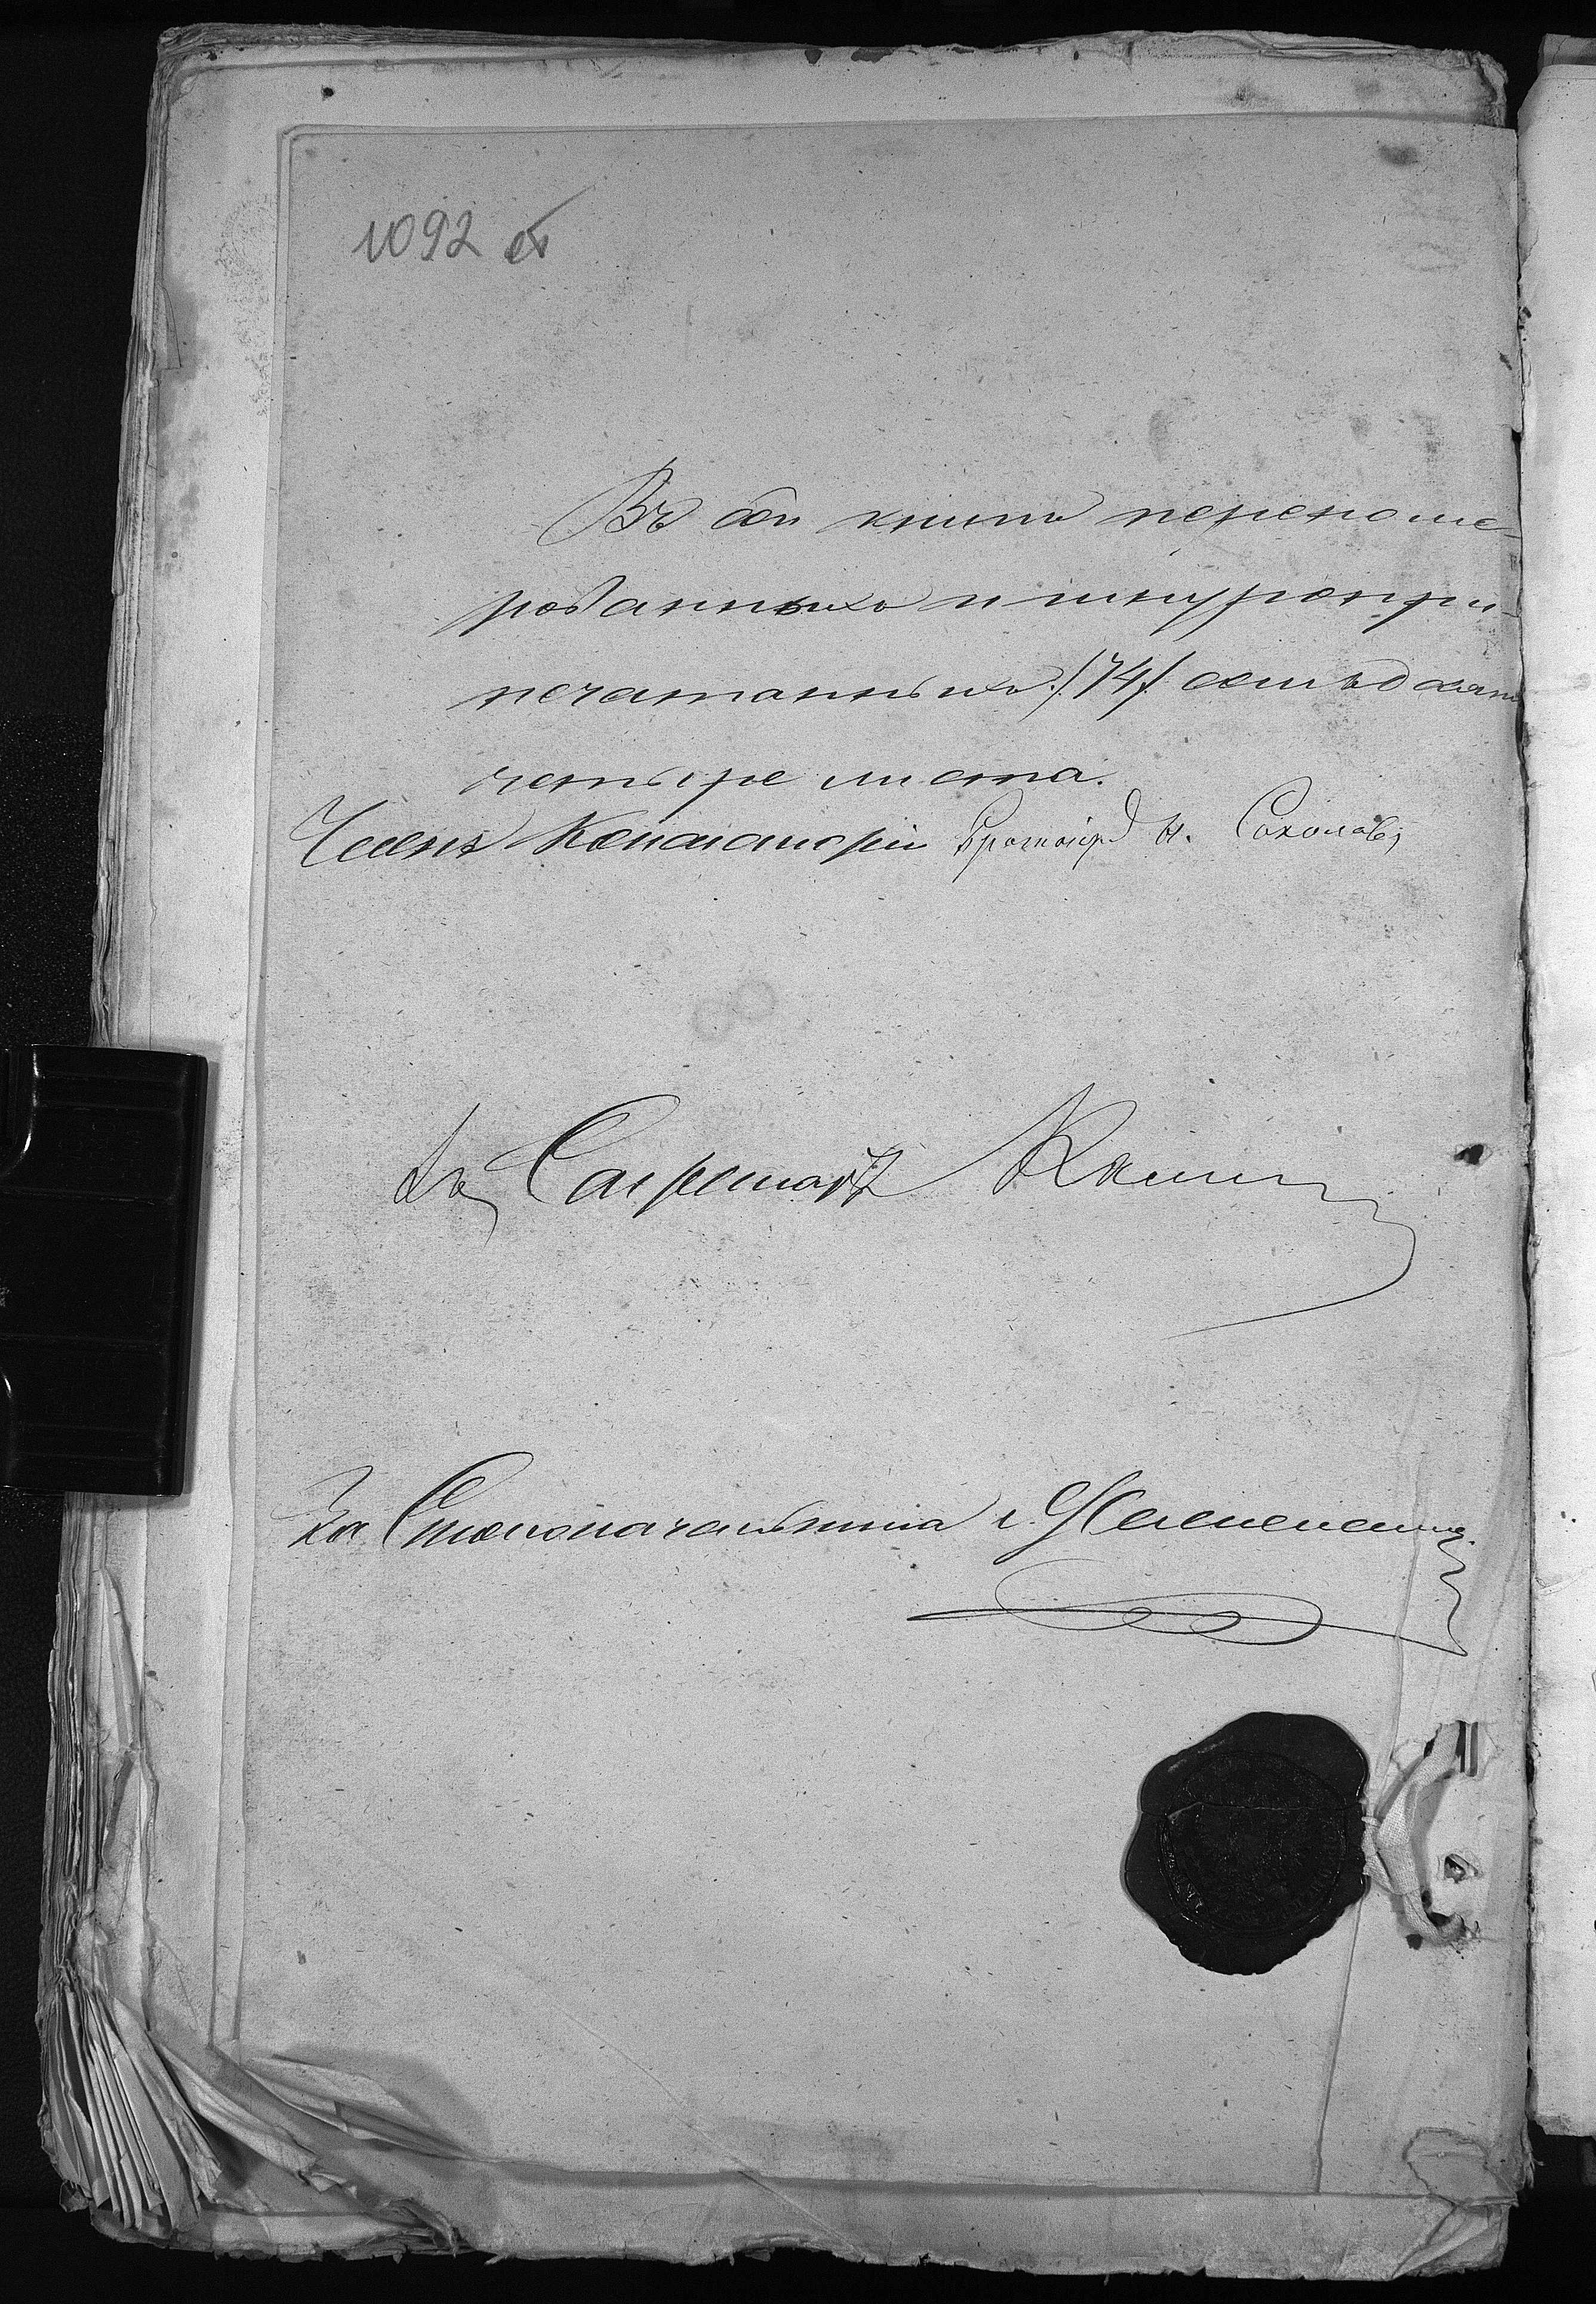 1092
Въ сей книгѣ перенуме-
рованныхъ и шнуропри-
печатанныхъ /74/ семьдесятъ
четыре листа.
Членъ Консисторіи Протоіерей Н. Соколовъ
За Секретаря
За Столоначальника